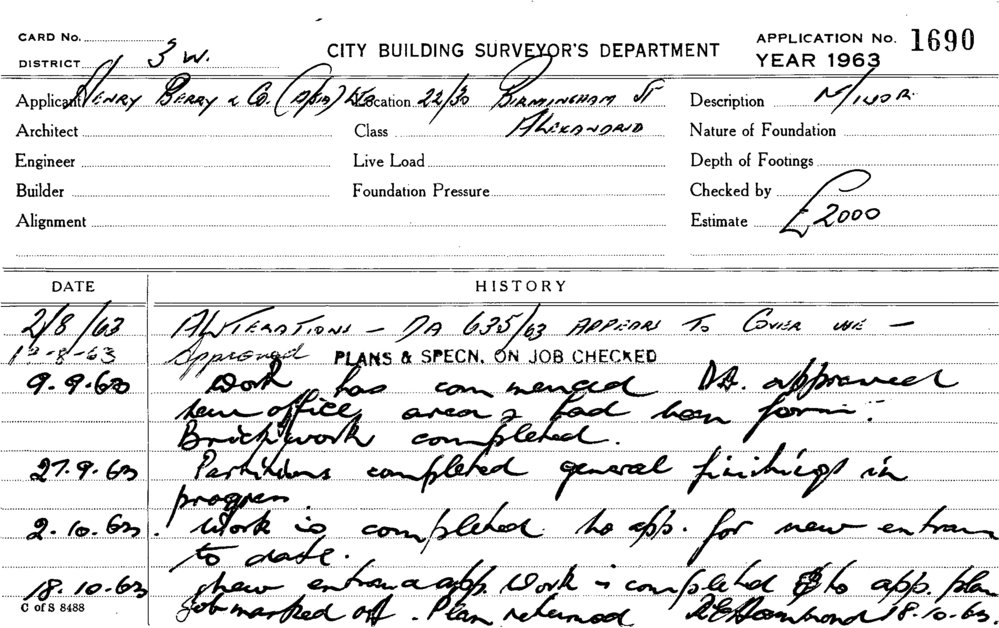 CARD No.
DISTRICT 3 W.
CITY BUILDING SURVEYOR'S DEPARTMENT
APPLICATION No. 1690
YEAR 1963
Applicant Henry Berry & Co. (A/sia) Ltd Location 22/30 Birmingham St Description Minor
Architect Class Alexandria Nature of Foundation
Engineer Live Load Depth of Footings
Builder Foundation Pressure Checked by
Alignment Estimate £2000
DATE HISTORY
2/8/63 Alterations – DA 635/63 appears to cover use –
12-8-63 Approved PLANS & SPECN. ON JOB CHECKED
9.9.63 Work has commenced DA. approved
new office areas had been
Brickwork completed.
27.9.63 Partitions completed general finishings in
progress
2.10.63 Work is completed to app. for new
to date.
18.10.63 new app. Work is completed to app. plan
C of S 8488
Job marked off. Plan returned 18.10.63.